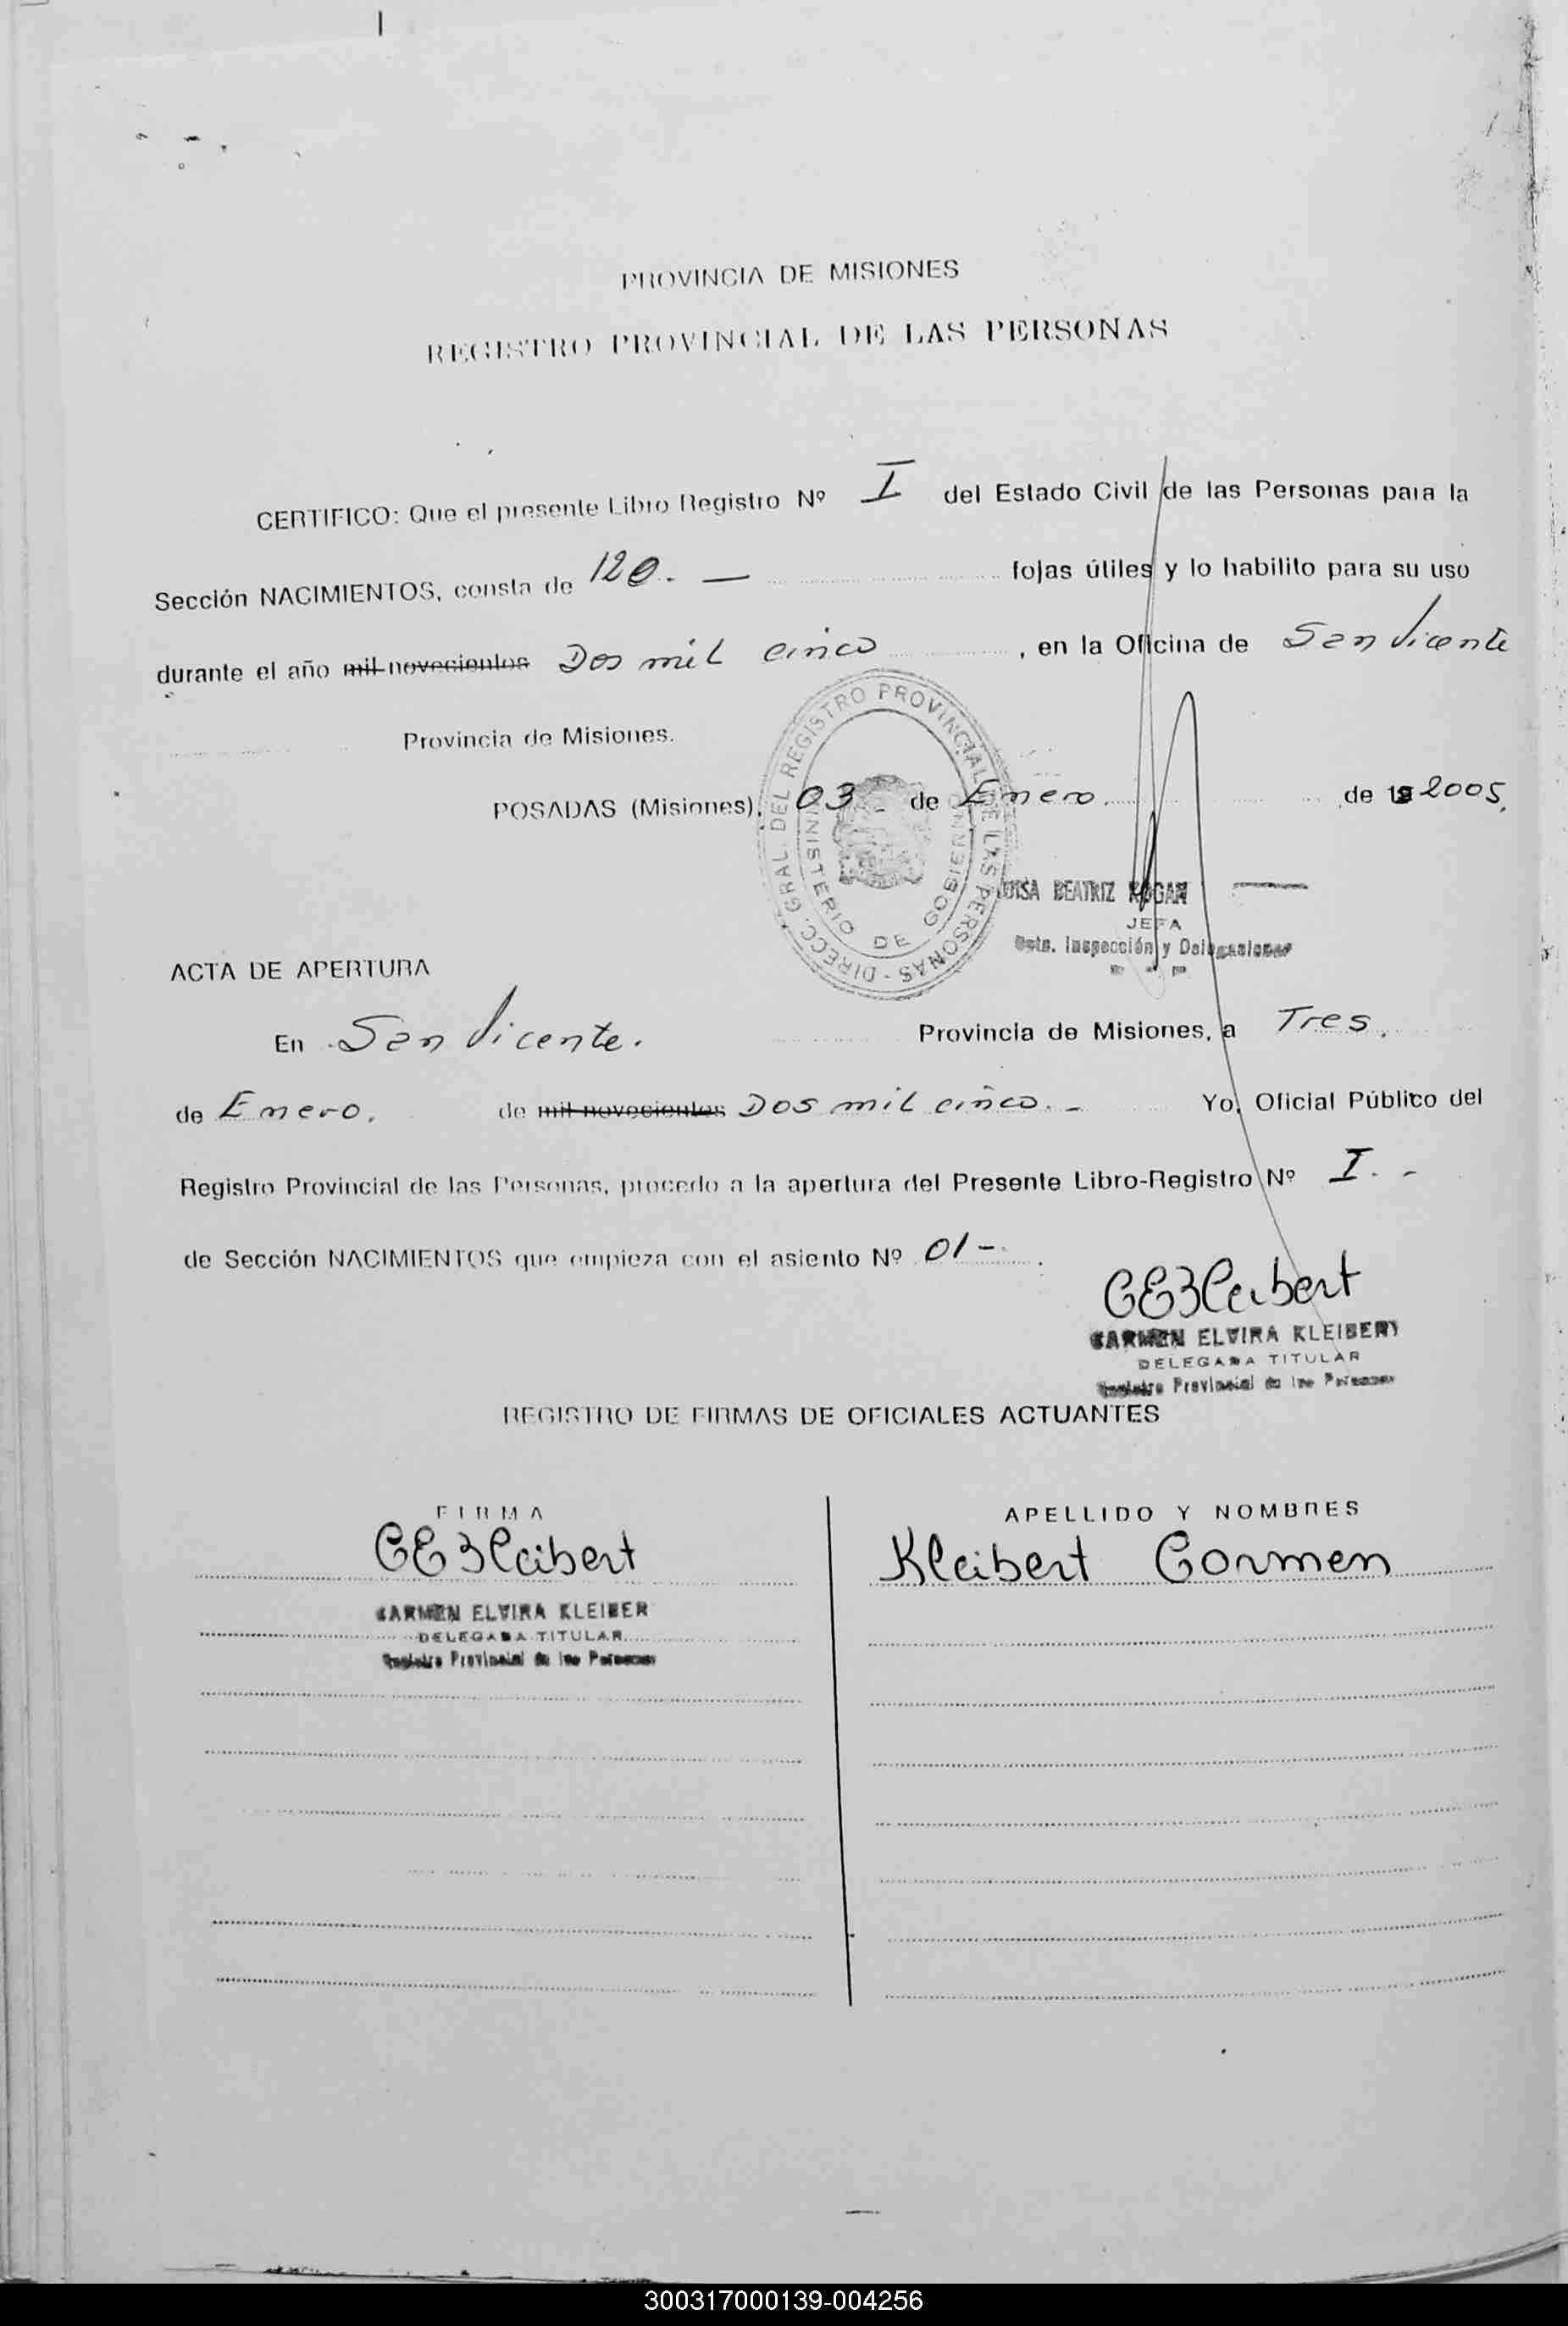 PROVINCIA DE MISIONES
REGISTRO PROVINCIAL DE LAS PERSONAS
CERTIFICO: Que el presente Libro Registro Nº I del Estado Civil de las Personas para la
Sección NACIMIENTOS, consta de 120. — fojas útiles y lo habilito para su uso
durante el año mil novecientos Dos mil cinco, en la Oficina de San Vicente
Provincia de Misiones.
POSADAS (Misiones), 03 de Enero. de 19 2005.
DIRECC. GRAL. DEL REGISTRO PROVINCIAL DE LAS PERSONAS -
MINISTERIO DE GOBIERNO
LUISA BEATRIZ ROGAN
JEFA
Dpto. Inspección y Delegaciones
ACTA DE APERTURA
En San Vicente. Provincia de Misiones, a Tres.
de Enero. de mil novecientos Dos mil cinco. - Yo, Oficial Público del
Registro Provincial de las Personas, procedo a la apertura del Presente Libro-Registro Nº I. -
de Sección NACIMIENTOS que empieza con el asiento Nº 01 -.
CEKleibert
CARMEN ELVIRA KLEIBERT
DELEGADA TITULAR
Registro Provincial de las Personas
REGISTRO DE FIRMAS DE OFICIALES ACTUANTES
FIRMA APELLIDO Y NOMBRES
CEKleibert Kleibert Carmen
CARMEN ELVIRA KLEIBER
DELEGADA TITULAR
Registro Provincial de las Personas
300317000139-004256